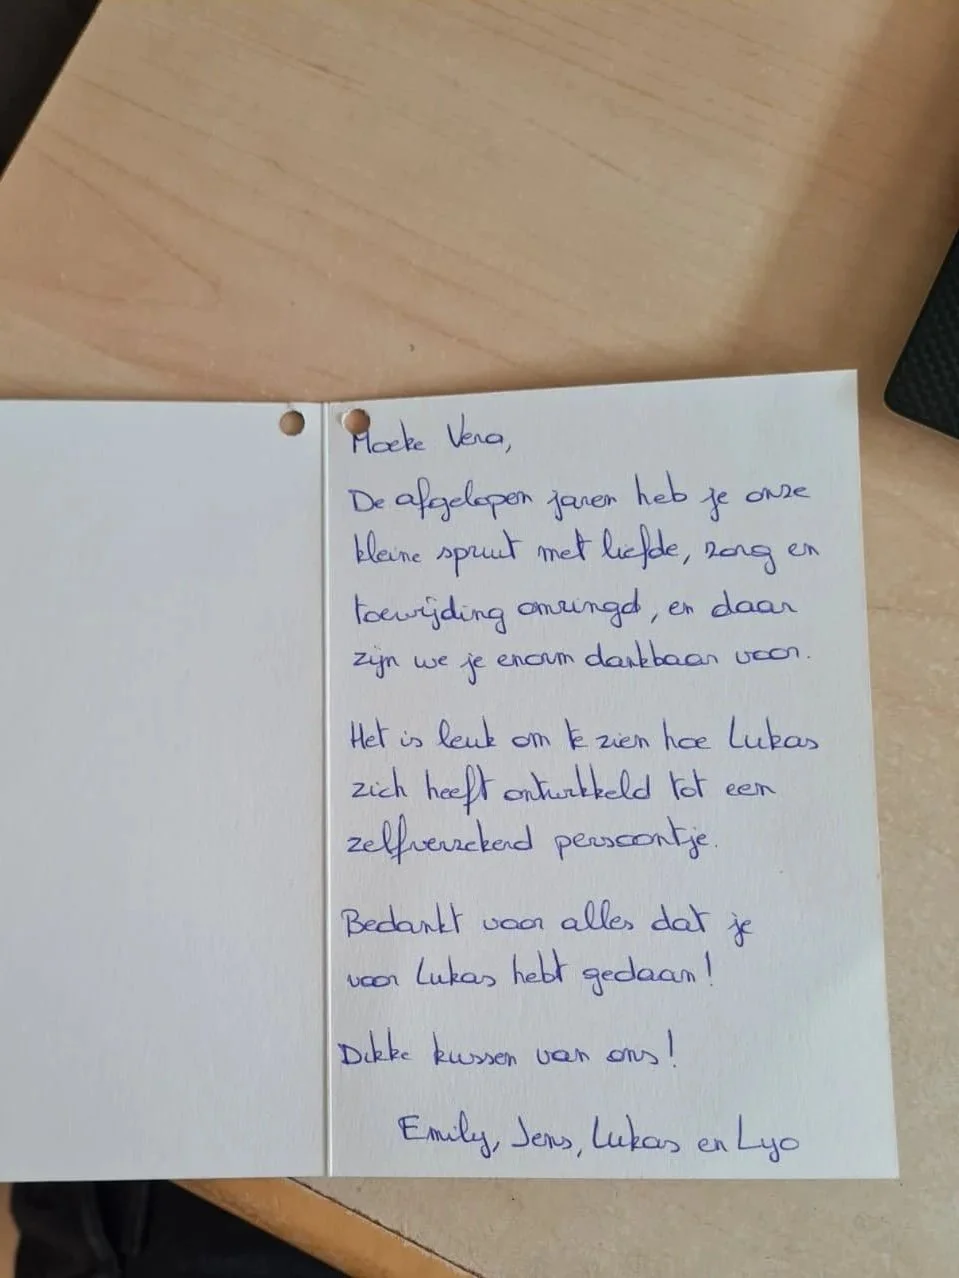 Moeke Vera,
De afgelopen jaren heb je onze
kleine spruit met liefde, zorg en
toewijding omringd, en daar
zijn we je enorm dankbaar voor.
Het is leuk om te zien hoe Lukas
zich heeft ontwikkeld tot een
zelfverzekerd persoontje.
Bedankt voor alles dat je
voor Lukas hebt gedaan!
Dikke kussen van ons!
Emily, Jens, Lukas en Lyo